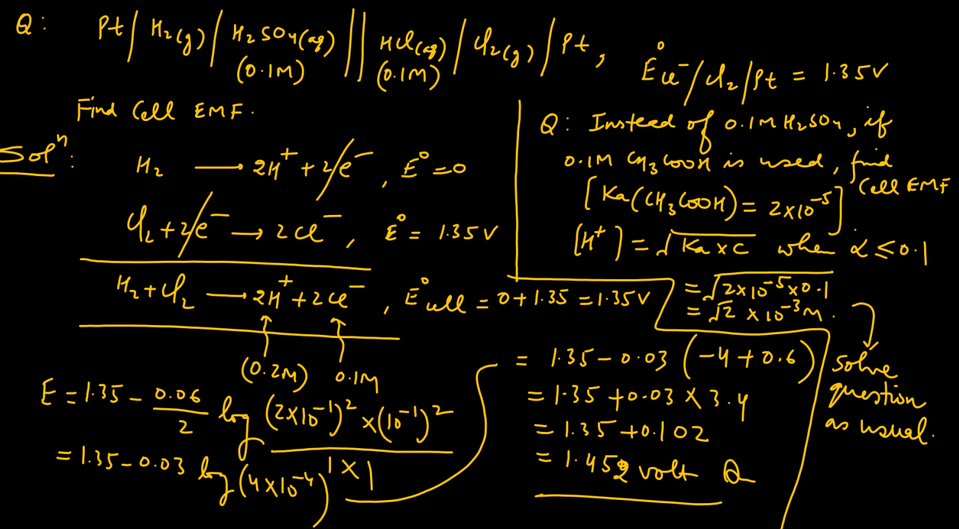 Q: Pt / H₂(g) / H₂SO₄(aq) (0.1M) || HCl(aq) (0.1M) / Cl₂(g) / Pt, E°Cl⁻/Cl₂/Pt = 1.35V
Find Cell EMF.
Solⁿ:
H₂ ⟶ 2H⁺ + 2e⁻, E° = 0
Cl₂ + 2e⁻ ⟶ 2Cl⁻, E° = 1.35V
H₂ + Cl₂ ⟶ 2H⁺ + 2Cl⁻, E°cell = 0 + 1.35 = 1.35V
(0.2M) 0.1M
E = 1.35 - 0.06/2 log (2×10⁻¹)² × (10⁻¹)² / 1×1
= 1.35 - 0.03 log (4×10⁻⁴)
= 1.35 - 0.03 (-4 + 0.6)
= 1.35 + 0.03 × 3.4
= 1.35 + 0.102
= 1.452 volt
Q: Instead of 0.1M H₂SO₄, if
0.1M CH₃COOH is used, find
Cell EMF
[Ka(CH₃COOH) = 2×10⁻⁵]
[H⁺] = √Ka×C when α ≤ 0.1
= √2×10⁻⁵×0.1
= √2 × 10⁻³M.
Solve
question
as usual.